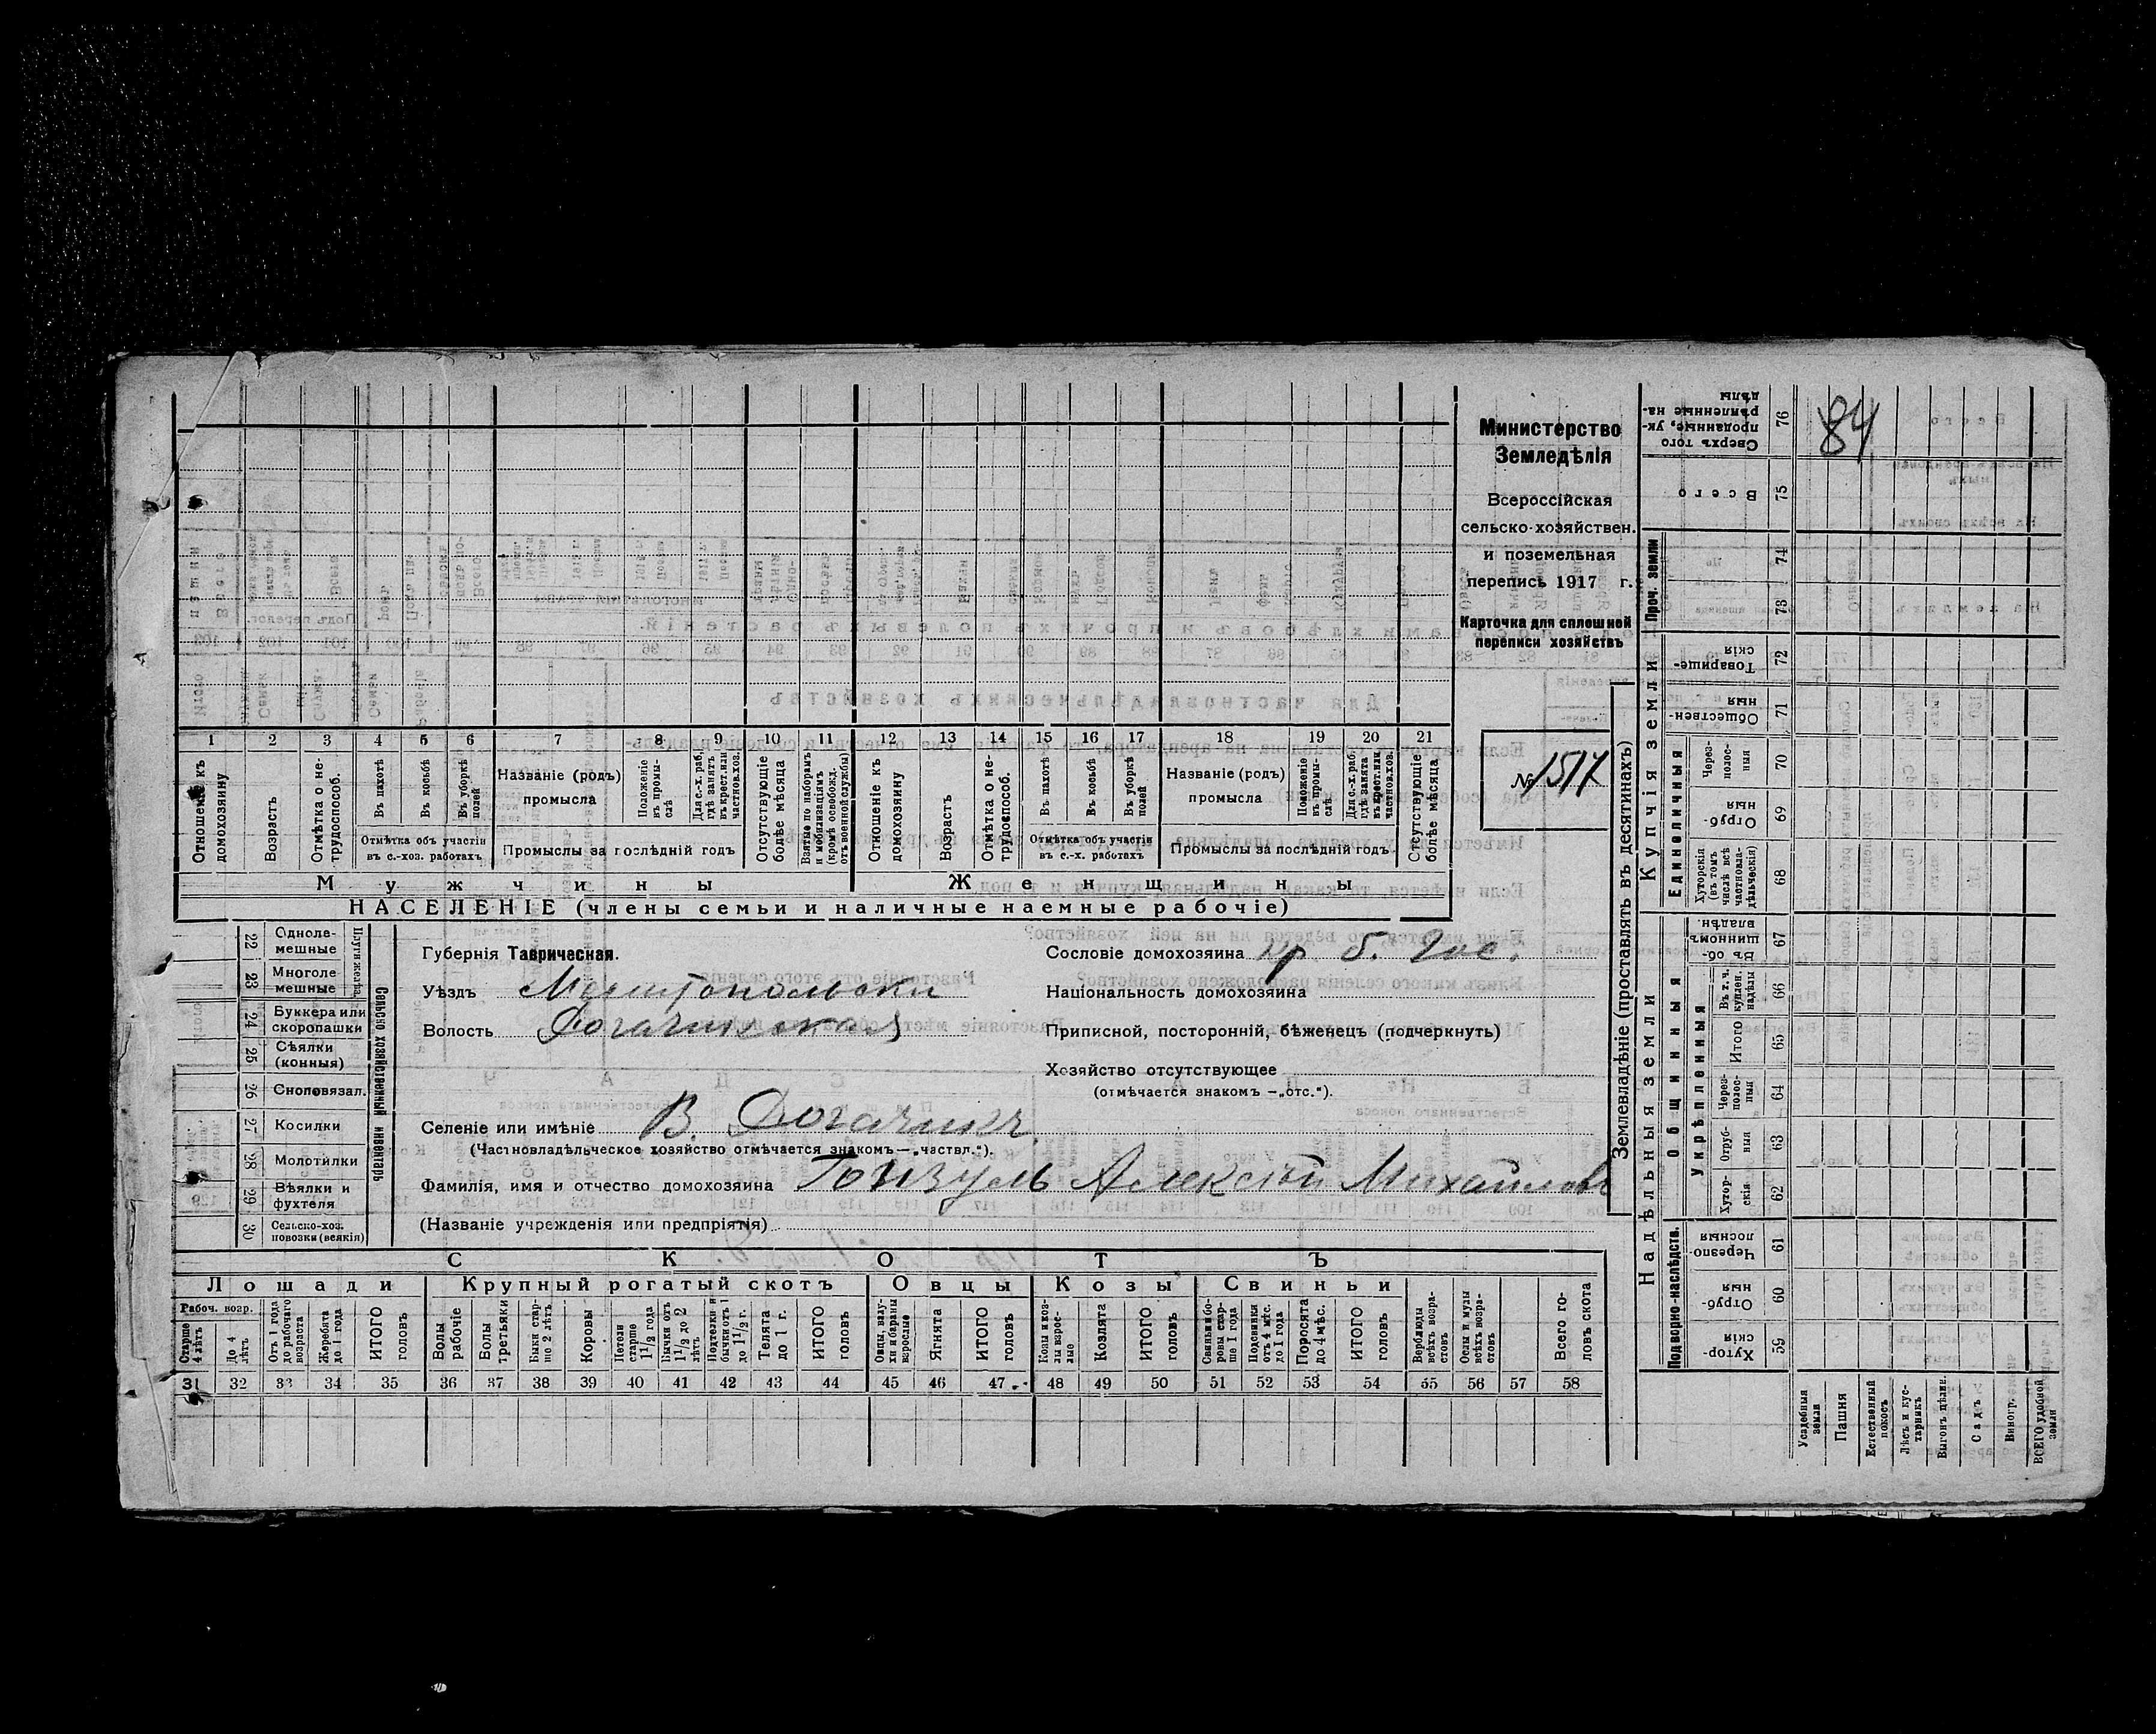 84
Министерство
Земледѣлія
Всероссійская
сельско-хозяйствен.
и поземельная
перепись 1917 г.
Карточка для сплошной
переписи хозяйствъ
№ 1517
1 2 3 4 5 6 7 8 9 10 11 12 13 14 15 16 17 18 19 20 21
Отношеніе къ домохозяину
Возрастъ
Отмѣтка о не-трудоспособ.
Въ пахотѣ
Въ косьбѣ
Въ уборкѣ полей
Отмѣтка объ участіи
въ с.-хоз. работахъ
Названіе (родъ)
промысла
Положеніе въ промы-слѣ
Для с.-х. раб. гдѣ занятъ въ крест. или частнов. хоз.
Промыслы за послѣдній годъ
Отсутствующіе болѣе мѣсяца
Взятые по наборамъ и мобилизаціямъ (кромѣ освобожд. отъ военной службы)
Отношеніе къ домохозяину
Возрастъ
Отмѣтка о не-трудоспособ.
Въ пахотѣ
Въ косьбѣ
Въ уборкѣ полей
Отмѣтка объ участіи
въ с.-х. работахъ
Названіе (родъ)
промысла
Положеніе въ промы-слѣ
Для с.-х. раб. гдѣ занята въ крест. или частнов. хоз.
Промыслы за послѣдній годъ
Отсутствующіе болѣе мѣсяца
Мужчины Женщины
НАСЕЛЕНІЕ (члены семьи и наличные наемные рабочіе)
22 Одноле-мешные
23 Многоле мешные
Плуги желѣз.
24 Буккера или скоропашки
25 Сѣялки (конныя)
26 Сноповязал.
27 Косилки
28 Молотилки
29 Вѣялки и фухтеля
30 Сельско-хоз. повозки (всякія)
Сельско хозяйственный инвентарь
Губернія Таврическая.
Уѣздъ Мелитопольски
Волость Рогачикская
Сословіе домохозяина кр б. Гос.
Національность домохозяина
Приписной, посторонній, бѣженецъ (подчеркнуть)
Хозяйство отсутствующее
(отмѣчается знакомъ —„отс.“).
Селеніе или имѣніе В. Рогачикъ
(Частновладѣльческое хозяйство отмѣчается знакомъ—„частвл.“).
Фамилія, имя и отчество домохозяина Гонзуль Алексѣй Михайловъ
(Названіе учрежденія или предпріятія)
СКОТЪ
Лошади Крупный рогатый скотъ Овцы Козы Свиньи
Рабоч. возр.
Старше 4 лѣтъ
До 4 лѣтъ
Отъ 1 года до рабочаго возраста
Жеребята до 1 года
ИТОГО головъ
Волы рабочіе
Волы третьяки
Быки стар-ше 2 лѣтъ
Коровы
Нетели старше 1½ года
Бычки отъ 1½ до 2 лѣтъ
Подтелки и бычки отъ 1 до 1½ г.
Телята до 1 г.
ИТОГО головъ
Овцы, валу-хи и бараны взрослые
Ягнята
ИТОГО головъ
Козы и коз-лы взрос-лые
Козлята
ИТОГО головъ
Свиньи и бо-ровы стар-ше 1 года
Подсвинки отъ 4 мѣс. до 1 года
Поросята до 4 мѣс.
ИТОГО головъ
Верблюды всѣхъ возра-стовъ
Ослы и мулы всѣхъ возра-стовъ
Всего го-ловъ скота
31 32 33 34 35 36 37 38 39 40 41 42 43 44 45 46 47 48 49 50 51 52 53 54 55 56 57 58
Землевладѣніе (проставлять въ десятинахъ)
Купчія земли
Надѣльныя земли
Проч. земли
Единоличныя
Общинныя
Укрѣпленныя
Подворно-наслѣдств.
Сверхъ того проданные, ук-рѣпленные на-дѣлы 76
Всего 75
74
73
Товарище-скія 72
Обществен-ныя 71
Через-полос-ныя 70
Отруб-ныя 69
Хуторскія (въ томъ числѣ всѣ частновла-дѣльческія) 68
Въ об-щинномъ владѣн. 67
Въ т. ч. куплен. надѣлы 66
Итого 65
Через-полос-ныя 64
Отруб-ныя 63
Хутор-скія 62
Черезпо-лосныя 61
Отруб-ныя 60
Хутор-скія 59
Усадебныя земли
Пашня
Естественный покосъ
Лѣсъ и кус-тарникъ
Выгонъ, цѣлин.
Садъ
Виногр.
ВСЕГО удобной земли